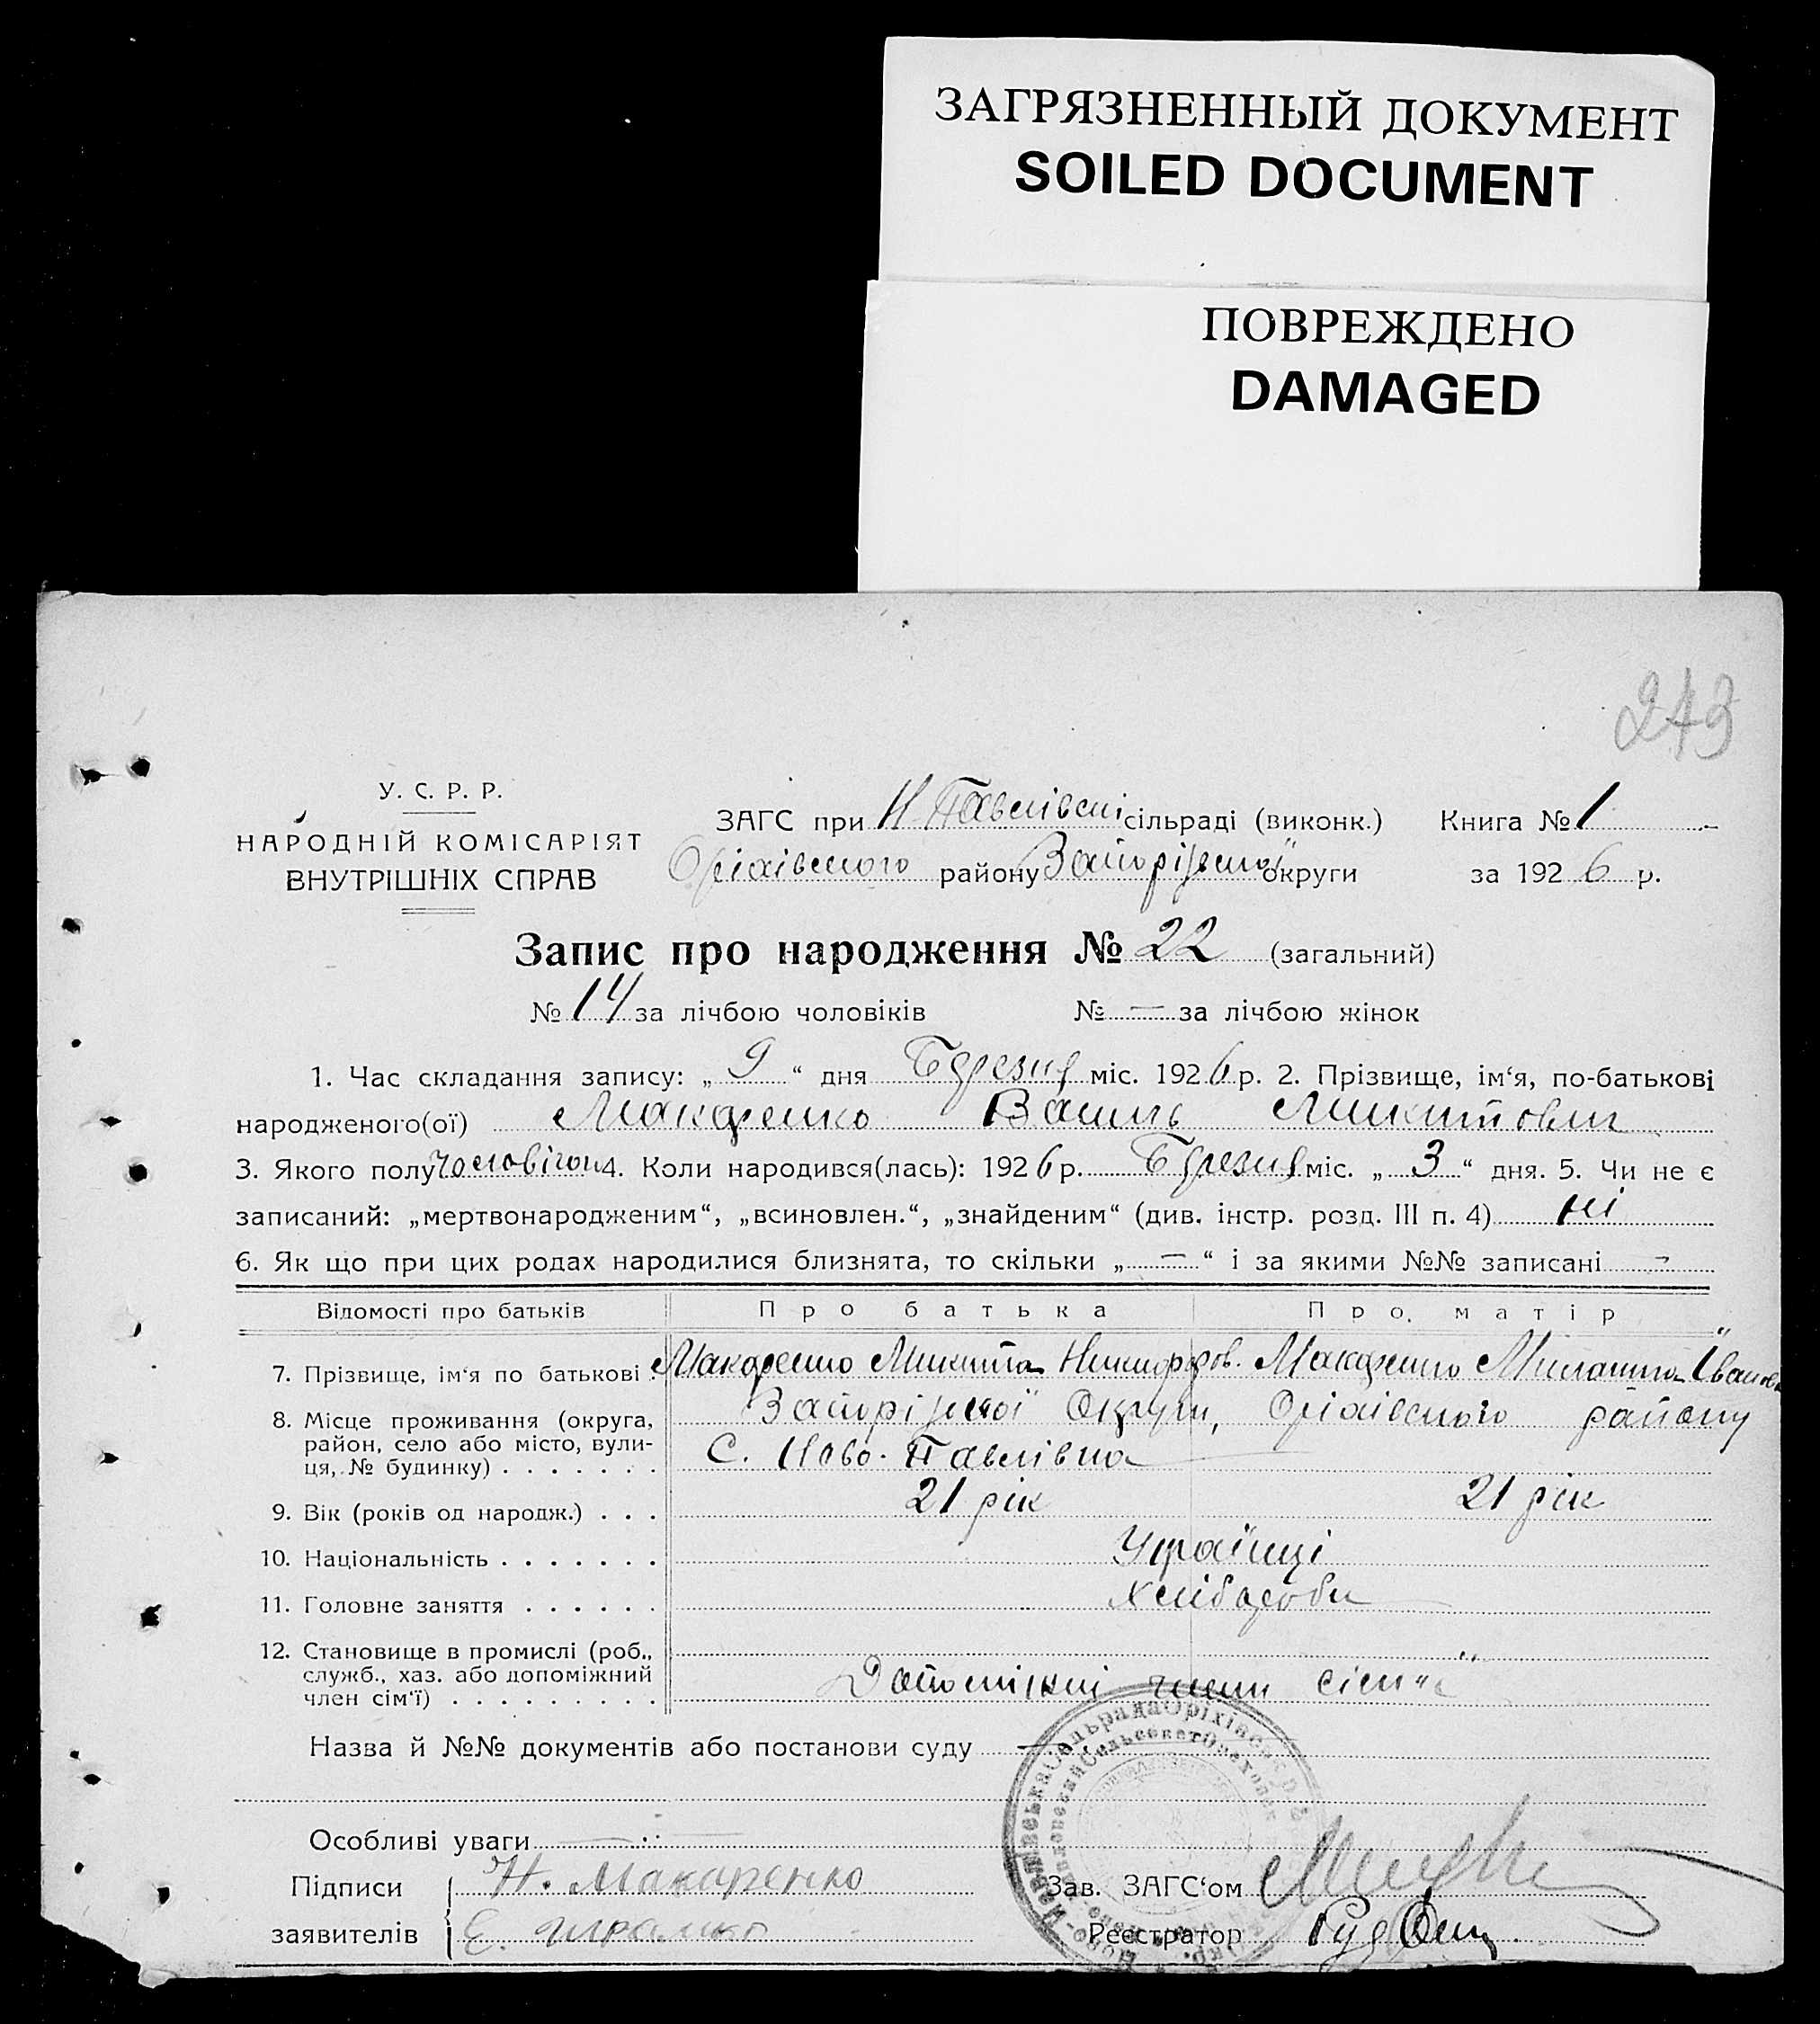 ЗАГРЯЗНЕННЫЙ ДОКУМЕНТ
SOILED DOCUMENT
ПОВРЕЖДЕНО
DAMAGED
243
У. С. Р. Р.
НАРОДНІЙ КОМІСАРІЯТ
ВНУТРІШНІХ СПРАВ
ЗАГС при Н. Павлівскі сільраді (виконк.) Книга № 1
Оріхівського району Запоріжської округи за 1926 р.
Запис про народження № 22 (загальний)
№ 14 за лічбою чоловіків № — за лічбою жінок
1. Час складання запису: „ 9 “ дня Березня міс. 1926 р. 2. Прізвище, ім‘я, по-батькові
народженого(ої) Макаренко Василь Микитович
3. Якого полу чоловічого 4. Коли народився(лась): 1926 р. Березня міс. „ 3 “ дня. 5. Чи не є
записаний: „мертвонародженим“, „всиновлен.“, „знайденим“ (див. інстр. розд. III п. 4) ні
6. Як що при цих родах народилися близнята, то скільки „ — “ і за якими №№ записані —
Відомості про батьків Про батька Про матір
7. Прізвище, ім‘я по батькові Макаренко Микита Никифоров. Макаренко Миланка Іванов
8. Місце проживання (округа, район, село або місто, вулиця, № будинку) . . . . . . . Запоріжської Округи, Оріхівського району
С. Ново-Павлівка
9. Вік (років од народж.) . . . 21 рік 21 рік
10. Національність . . . . . . . Українці
11. Головне заняття . . . . . . Хлібороби
12. Становище в промислі (роб., служб., хаз. або допоміжний член сім‘ї) . . . . . . . . . Допоміжні члени сім'ї
Назва й №№ документів або постанови суду —
Особливі уваги —
Підписи Н. Макаренко Зав. ЗАГС‘ом
заявителів Е. Реєстратор